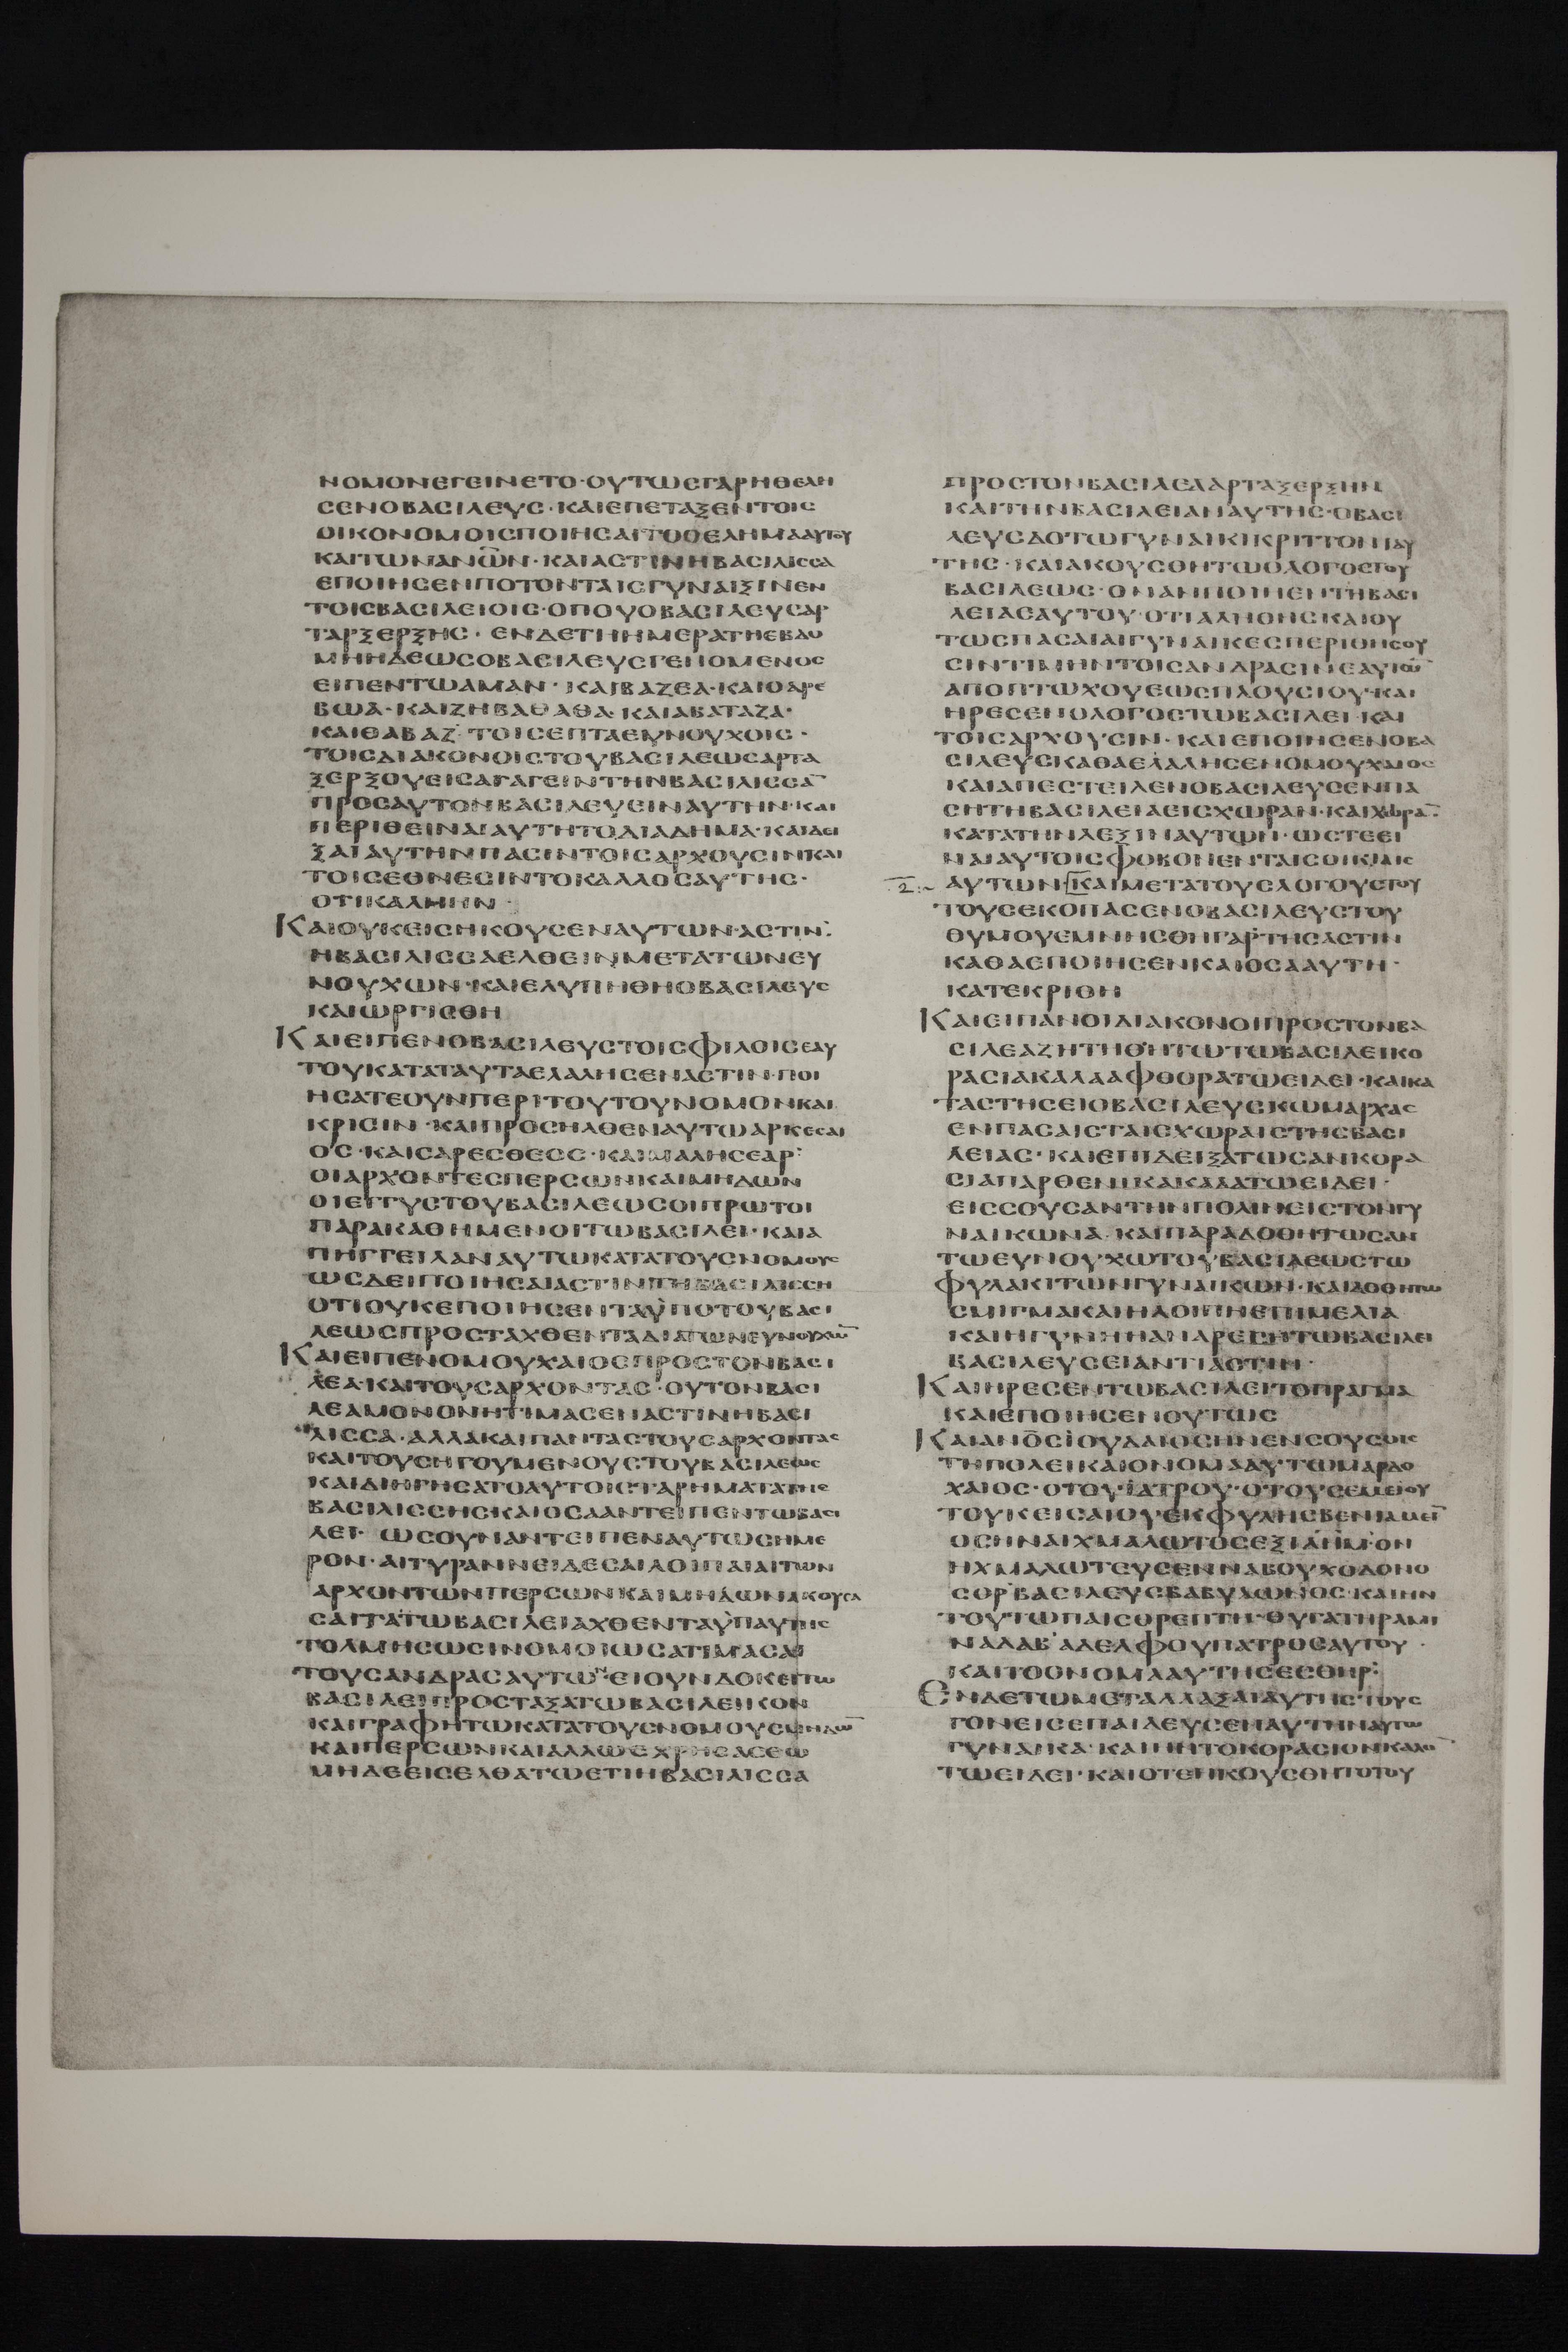 ΝΟΜΟΝΕΓΕΙΝΕΤΟ·ΟΥΤΩΣΓΑΡΗΘΕΛΗ
ΣΕΝΟΒΑΣΙΛΕΥΣ·ΚΑΙΕΠΕΤΑΞΕΝΤΟΙΣ
ΟΙΚΟΝΟΜΟΙΣΠΟΙΗΣΑΙΤΟΘΕΛΗΜΑΑΥΤΟΥ
ΚΑΙΤΩΝΑΝΩΝ·ΚΑΙΑΣΤΙΝΗΒΑΣΙΛΙΣΣΑ
ΕΠΟΙΗΣΕΝΠΟΤΟΝΤΑΙΣΓΥΝΑΙΞΙΝΕΝ
ΤΟΙΣΒΑΣΙΛΕΙΟΙΣ·ΟΠΟΥΟΒΑΣΙΛΕΥΣΑΡ
ΤΑΡΞΕΡΞΗΣ·ΕΝΔΕΤΗΗΜΕΡΑΤΗΕΒΔΟ
ΜΗΗΔΕΩΣΟΒΑΣΙΛΕΥΣΓΕΝΟΜΕΝΟΣ
ΕΙΠΕΝΤΩΑΜΑΝ·ΚΑΙΒΑΖΕΑ·ΚΑΙΟΑΡΕ
ΒΩΑ·ΚΑΙΖΗΒΑΘΑΘΑ·ΚΑΙΑΒΑΤΑΖΑ·
ΚΑΙΘΑΒΑΖ·ΤΟΙΣΕΠΤΑΕΥΝΟΥΧΟΙΣ·
ΤΟΙΣΔΙΑΚΟΝΟΙΣΤΟΥΒΑΣΙΛΕΩΣΑΡΤΑ
ΞΕΡΞΟΥΕΙΣΑΓΑΓΕΙΝΤΗΝΒΑΣΙΛΙΣΣΑ̅
ΠΡΟΣΑΥΤΟΝΒΑΣΙΛΕΥΕΙΝΑΥΤΗΝ·ΚΑΙ
ΠΕΡΙΘΕΙΝΑΙΑΥΤΗΤΟΔΙΑΔΗΜΑ·ΚΑΙΔΕΙ
ΞΑΙΑΥΤΗΝΠΑΣΙΝΤΟΙΣΑΡΧΟΥΣΙΝΚΑΙ
ΤΟΙΣΕΘΝΕΣΙΝΤΟΚΑΛΛΟΣΑΥΤΗΣ·
ΟΤΙΚΑΛΗΗΝ·
ΚΑΙΟΥΚΕΙΣΗΚΟΥΣΕΝΑΥΤΩΝ·ΑΣΤΙΝ
ΗΒΑΣΙΛΙΣΣΑΕΛΘΕΙΝΜΕΤΑΤΩΝΕΥ
ΝΟΥΧΩΝ·ΚΑΙΕΛΥΠΗΘΗΟΒΑΣΙΛΕΥΣ
ΚΑΙΩΡΓΙΣΘΗ
ΚΑΙΕΙΠΕΝΟΒΑΣΙΛΕΥΣΤΟΙΣΦΙΛΟΙΣΕΑΥ
ΤΟΥΚΑΤΑΤΑΥΤΑΕΛΑΛΗΣΕΝΑΣΤΙΝ·ΠΟΙ
ΗΣΑΤΕΟΥΝΠΕΡΙΤΟΥΤΟΥΝΟΜΟΝΚΑΙ
ΚΡΙΣΙΝ·ΚΑΙΠΡΟΣΗΛΘΕΝΑΥΤΩΑΡΚΕΣΑΙ
ΟΣ·ΚΑΙΣΑΡΕΣΘΕΟΣ·ΚΑΙΜΑΛΗΣΕΑΡ·
ΟΙΑΡΧΟΝΤΕΣΠΕΡΣΩΝΚΑΙΜΗΔΩΝ
ΟΙΕΓΓΥΣΤΟΥΒΑΣΙΛΕΩΣΟΙΠΡΩΤΟΙ
ΠΑΡΑΚΑΘΗΜΕΝΟΙΤΩΒΑΣΙΛΕΙ·ΚΑΙΑ
ΠΗΓΓΕΙΛΑΝΑΥΤΩΚΑΤΑΤΟΥΣΝΟΜΟΥΣ
ΩΣΔΕΙΠΟΙΗΣΑΙΑΣΤΙΝΤΗΒΑΣΙΛΙΣΣΗ
ΟΤΙΟΥΚΕΠΟΙΗΣΕΝΤΑΫΠΟΤΟΥΒΑΣΙ
ΛΕΩΣΠΡΟΣΤΑΧΘΕΝΤΑΔΙΑΤΩΝΕΥΝΟΥΧΩ̅
ΚΑΙΕΙΠΕΝΟΜΟΥΧΑΙΟΣΠΡΟΣΤΟΝΒΑΣΙ
ΛΕΑ·ΚΑΙΤΟΥΣΑΡΧΟΝΤΑΣ·ΟΥΤΟΝΒΑΣΙ
ΛΕΑΜΟΝΟΝΗΤΙΜΑΣΕΝΑΣΤΙΝΗΒΑΣΙ
ΛΙΣΣΑ·ΑΛΛΑΚΑΙΠΑΝΤΑΣΤΟΥΣΑΡΧΟΝΤΑΣ
ΚΑΙΤΟΥΣΗΓΟΥΜΕΝΟΥΣΤΟΥΒΑΣΙΛΕΩΣ
ΚΑΙΔΙΗΓΗΣΑΤΟΑΥΤΟΙΣΤΑΡΗΜΑΤΑΤΗΣ
ΒΑΣΙΛΙΣΣΗΣΚΑΙΟΣΑΑΝΤΕΙΠΕΝΤΩΒΑΣΙ
ΛΕΙ·ΩΣΟΥΝΑΝΤΕΙΠΕΝΑΥΤΩΣΗΜΕ
ΡΟΝ·ΑΙΤΥΡΑΝΝΕΙΔΕΣΑΙΛΟΙΠΑΙΑΙΤΩΝ
ΑΡΧΟΝΤΩΝΠΕΡΣΩΝΚΑΙΜΗΔΩΝΑΚΟΥΣΑ
ΣΑΙΤΑΤΩΒΑΣΙΛΕΙΛΧΘΕΝΤΑΫΠΑΥΤΗΣ
ΤΟΛΜΗΣΩΣΙΝΟΜΟΙΩΣΑΤΙΜΑΣΑΙ
ΤΟΥΣΑΝΔΡΑΣΑΥΤΩΝ·ΕΙΟΥΝΔΟΚΕΙΤΩ
ΒΑΣΙΛΕΙΠΡΟΣΤΑΞΑΤΩΒΑΣΙΛΕΙΚΟΝ
ΚΑΙΓΡΑΦΗΤΩΚΑΤΑΤΟΥΣΝΟΜΟΥΣΜΗΔΩ̅
ΚΑΙΠΕΡΣΩΝΚΑΙΑΛΛΩΣ
ΜΗΔΕΕΙΣΕΛΘΑΤΩΕΤΙΗΒΑΣΙΛΙΣΣΑ
ΠΡΟΣΤΟΝΒΑΣΙΛΕΑΑΡΤΑΞΕΡΞΗΝ
ΚΑΙΤΗΝΒΑΣΙΛΕΙΑΝΑΥΤΗΣ·ΟΒΑΣΙ
ΛΕΥΣΔΟΤΩΓΥΝΑΙΚΙΚΡΙΤΤΟΝΙΑΥ
ΤΗΣ·ΚΑΙΑΚΟΥΣΘΗΤΩΟΛΟΓΟΣΤΟΥ
ΒΑΣΙΛΕΩΣ·ΟΝΑΝΠΟΙΗΕΝΤΗΒΑΣΙ
ΛΕΙΑΣΑΥΤΟΥ·ΟΤΙΑΛΗΘΗΣΚΑΙΟΥ
ΤΩΣΠΑΣΑΙΑΙΓΥΝΑΙΚΕΣΠΕΡΙΘΗΣΟΥ
ΣΙΝΤΙΜΗΝΤΟΙΣΑΝΔΡΑΣΙΝΕΑΥΤΩ̅
ΑΠΟΠΤΩΧΟΥΕΩΣΠΛΟΥΣΙΟΥ·ΚΑΙ
ΗΡΕΣΕΝΟΛΟΓΟΣΤΩΒΑΣΙΛΕΙ·ΚΑΙ
ΤΟΙΣΑΡΧΟΥΣΙΝ·ΚΑΙΕΠΟΙΗΣΕΝΟΒΑ
ΣΙΛΕΥΣΚΑΘΑΕΛΑΛΗΣΕΝΟΜΟΥΧΑΙΟΣ
ΚΑΙΑΠΕΣΤΕΙΛΕΝΟΒΑΣΙΛΕΥΣΕΝΠΑ
ΣΗΤΗΒΑΣΙΛΕΙΑΕΙΣΧΩΡΑΝ·ΚΑΙΧΩΡΑ̅
ΚΑΤΑΤΗΝΛΕΞΙΝΑΥΤΩΝ·ΩΣΤΕΕΙ
ΝΑΙΑΥΤΟΙΣΦΟΒΟΝΕΝΤΑΙΣΟΙΚΙΑΙΣ
2 ΑΥΤΩΝ[ΚΑΙΜΕΤΑΤΟΥΣΛΟΓΟΥΣΤΟΥ
ΤΟΥΣΕΚΟΠΑΣΕΝΟΒΑΣΙΛΕΥΣΤΟΥ
ΘΥΜΟΥΕΜΝΗΣΘΗΓΑΡΤΗΣΑΣΤΙΝ
ΚΑΘΑΕΠΟΙΗΣΕΝΚΑΙΟΣΑΑΥΤΗ·
ΚΑΤΕΚΡΙΘΗ
ΚΑΙΕΙΠΑΝΟΙΔΙΑΚΟΝΟΙΠΡΟΣΤΟΝΒΑ
ΣΙΛΕΑΖΗΤΗΘΗΤΩΤΩΒΑΣΙΛΕΙΚΟ
ΡΑΣΙΑΚΑΛΑΑΦΘΟΡΑΤΩΕΙΔΕΙ·ΚΑΙΚΑ
ΤΑΣΤΗΣΕΙΟΒΑΣΙΛΕΥΣΚΩΜΑΡΧΑΣ
ΕΝΠΑΣΑΙΣΤΑΙΣΧΩΡΑΙΣΤΗΣΒΑΣΙ
ΛΕΙΑΣ·ΚΑΙΕΠΙΔΕΙΞΑΤΩΣΑΝΚΟΡΑ
ΣΙΑΠΑΡΘΕΝΙΚΑΚΑΛΑΤΩΕΙΔΕΙ·
ΕΙΣΣΟΥΣΑΝΤΗΝΠΟΛΙΝΕΙΣΤΟΝΓΥ
ΝΑΙΚΩΝΑ·ΚΑΙΠΑΡΑΔΟΘΗΤΩΣΑΝ
ΤΩΕΥΝΟΥΧΩΤΟΥΒΑΣΙΛΕΩΣΤΩ
ΦΥΛΑΚΙΤΩΝΓΥΝΑΙΚΩΝ·ΚΑΙΔΟΘΗΤΩ
ΣΜΙΓΜΑΚΑΙΗΛΟΙΠΗΕΠΙΜΕΛΙΑ
ΚΑΙΗΓΥΝΗΗΑΝΑΡΕΣΗΤΩΒΑΣΙΛΕΙ
ΒΑΣΙΛΕΥΣΕΙΑΝΤΙΑΣΤΙΝ·
ΚΑΙΗΡΕΣΕΝΤΩΒΑΣΙΛΕΙΤΟΠΡΑΓΜΑ
ΚΑΙΕΠΟΙΗΣΕΝΟΥΤΩΣ
ΚΑΙΑΝΟΣΪΟΥΔΑΙΟΣΗΝΕΝΣΟΥΣΟΙΣ
ΤΗΠΟΛΕΙΚΑΙΟΝΟΜΑΑΥΤΩΜΑΡΔΟ
ΧΑΙΟΣ·ΟΤΟΥΪΑΤΡΟΥ·ΟΤΟΥΣΕΜΕΙΟΥ
ΤΟΥΚΕΙΣΑΙΟΥΕΚΦΥΛΗΣΒΕΝΙΑΜΕΙ̅
ΟΣΗΝΑΙΧΜΑΛΩΤΟΣΕΞΙΛΗΜ·ΟΝ
ΗΧΜΑΛΩΤΕΥΣΕΝΝΑΒΟΥΧΟΔΟΝΟ
ΣΟΡΒΑΣΙΛΕΥΣΒΑΒΥΛΩΝΟΣ·ΚΑΙΗΝ
ΤΟΥΤΩΠΑΙΣΘΡΕΠΤΗ·ΘΥΓΑΤΗΡΑΜΙ
ΝΑΔΑΒΑΔΕΛΦΟΥΠΑΤΡΟΣΑΥΤΟΥ·
ΚΑΙΤΟΟΝΟΜΑΑΥΤΗΣΕΣΘΗΡ·
ΕΝΔΕΤΩΜΕΤΑΛΛΑΞΑΙΑΥΤΗΣΤΟΥΣ
ΓΟΝΕΙΣΕΠΑΙΔΕΥΣΕΝΑΥΤΗΝΑΥΤΩ
ΓΥΝΑΙΚΑ·ΚΑΙΗΝΤΟΚΟΡΑΣΙΟΝΚΑΛΟ̅
ΤΩΕΙΔΕΙ·ΚΑΙΟΤΕΗΚΟΥΣΘΗΤΟΤΟΥ